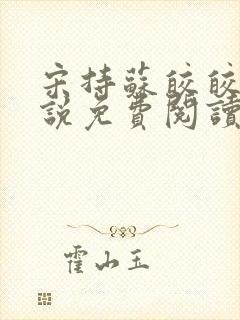 宋持蘇皎皎
說免費閱讀
霍山玉